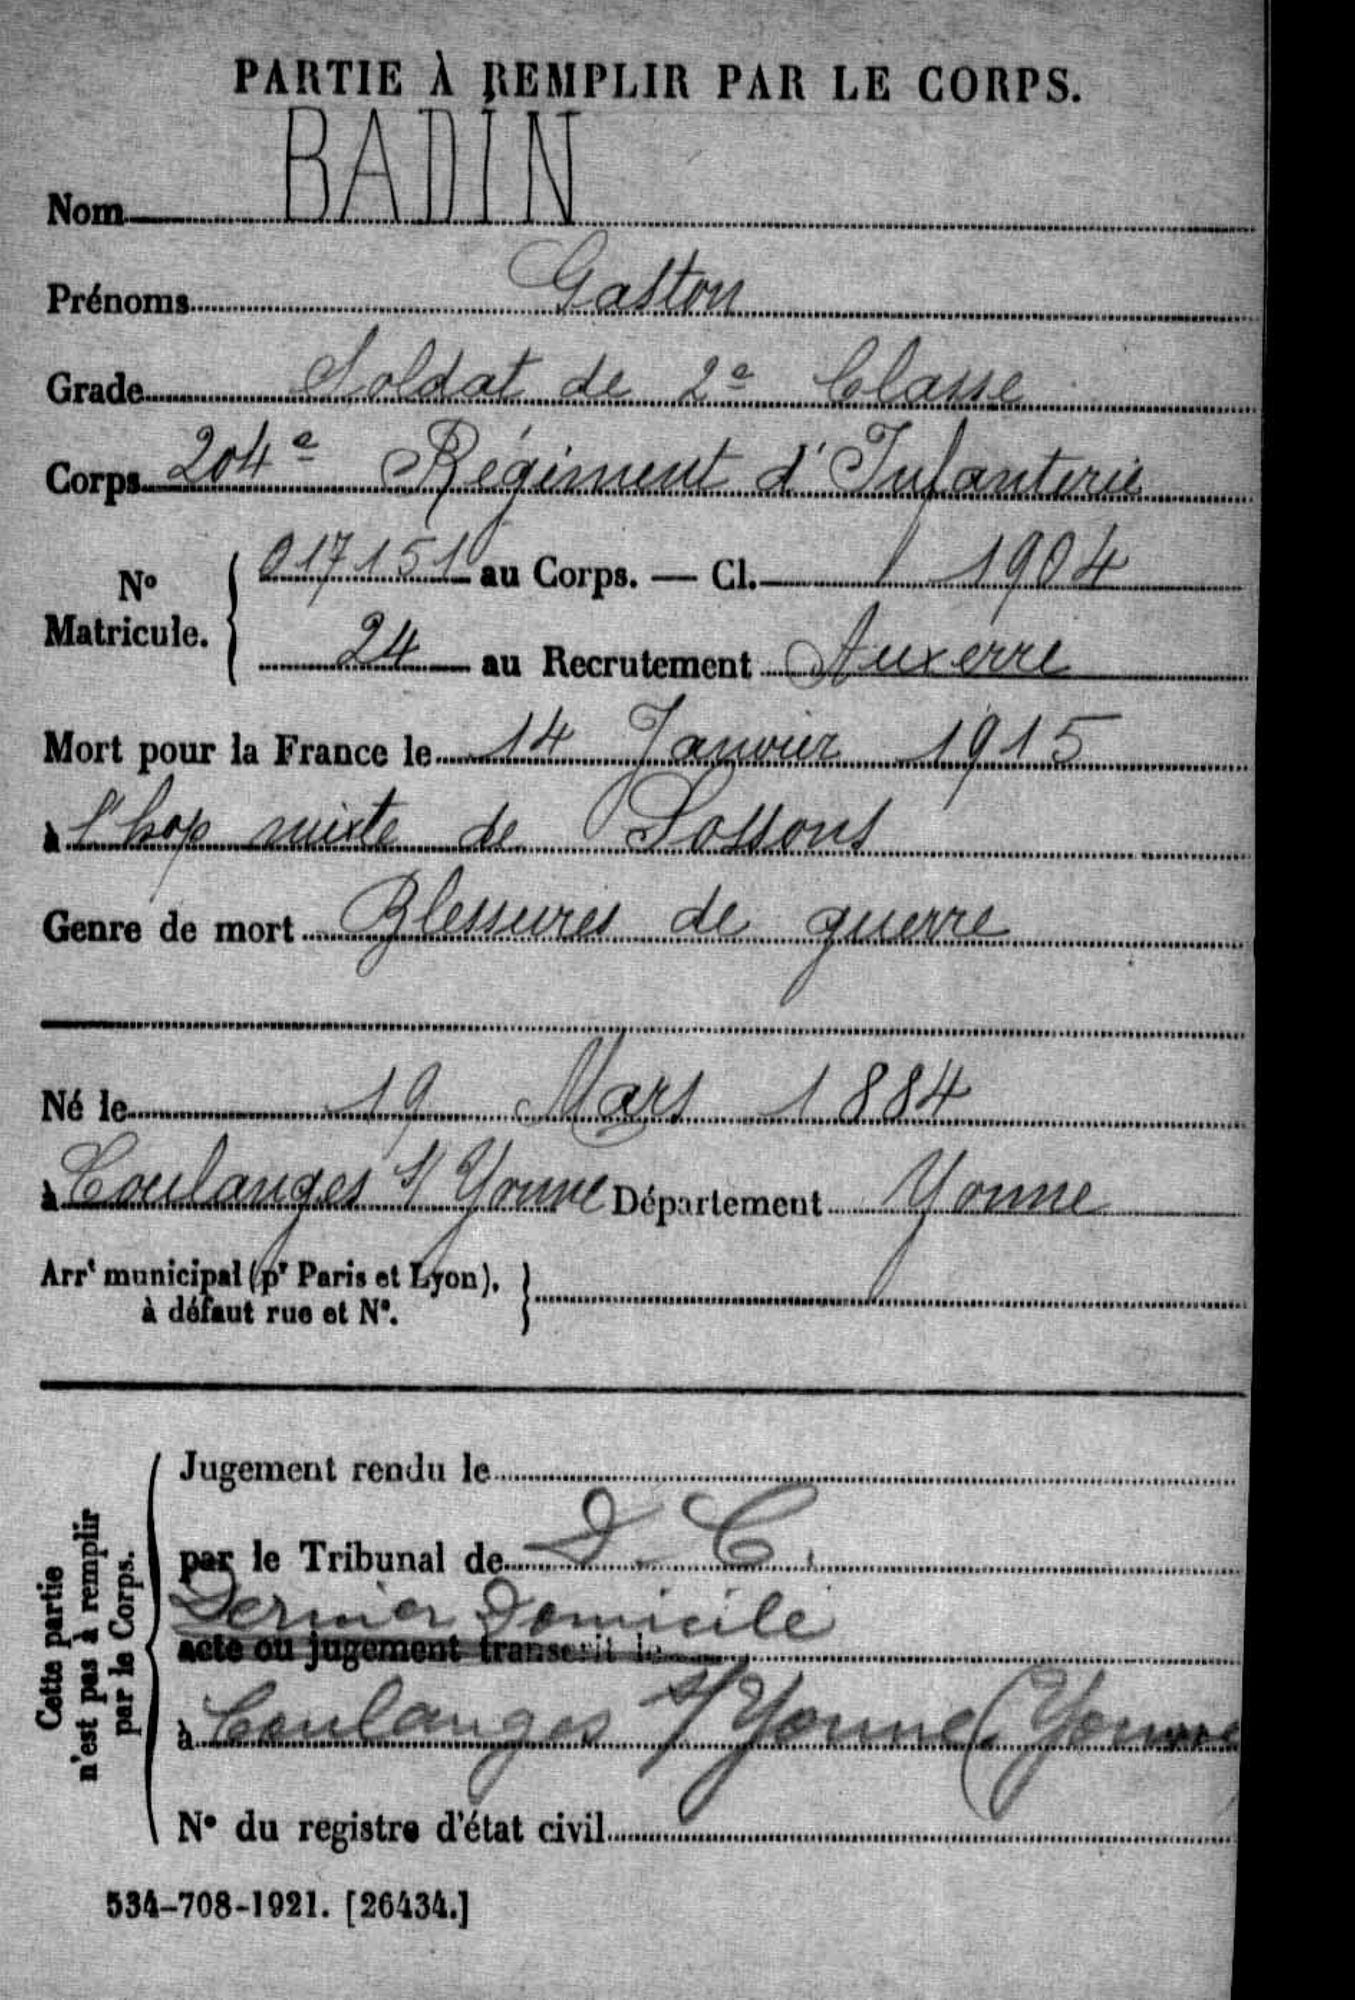 PARTIE À REMPLIR PAR LE CORPS.
Nom BADIN
Prénoms Gaston
Grade Soldat de 2e Classe
Corps 204e Régiment d'Infanterie
N° Matricule. { 017151 au Corps. — Cl. 1904
24 au Recrutement Auxerre
Mort pour la France le 14 Janvier 1915
à l'hop mixte de Sossons
Genre de mort Blessures de guerre
Né le 19 Mars 1884
à Coulanges s/ Yonne Département Yonne
Arrt municipal (pr Paris et Lyon),
à défaut rue et N°. }
Cette partie
n'est pas à remplir
par le Corps.
Jugement rendu le
par le Tribunal de D. C.
Dernier Domicile
acte ou jugement transcrit le
à Coulanges s/Yonne (Yonne
N° du registre d'état civil
534-708-1921. [26434.]